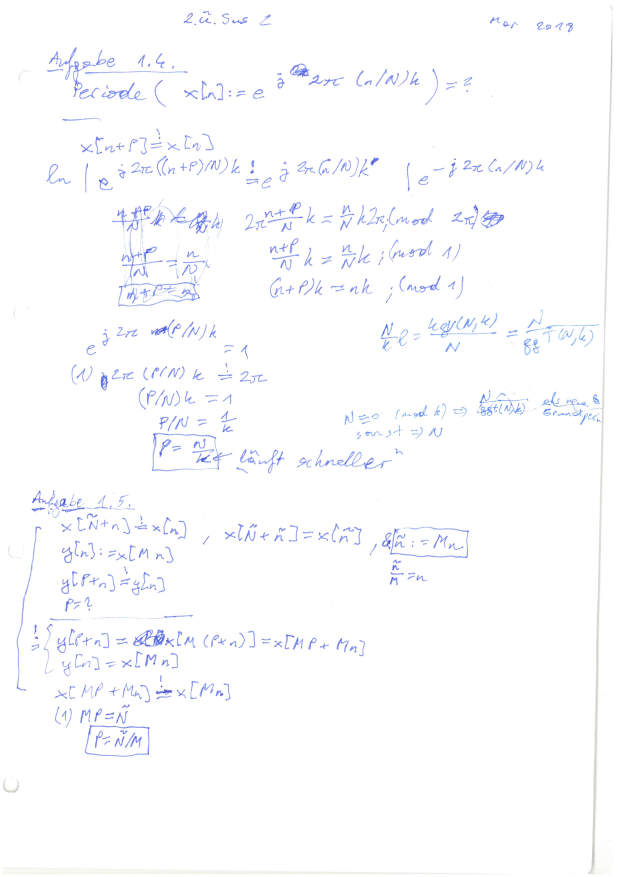 2. Ü. SuS 2 Mai 2018
Aufgabe 1.4.
Periode ( x[n] := e^{j 2π (n/N) k} ) = ?
x[n+P] != x[n]
ln | e^{j 2π((n+P)/N)k} != e^{j 2π(n/N)k} | e^{-j 2π(n/N)k}
2π \frac{n+P}{N} k = \frac{n}{N} k 2π; (mod 2π)
\frac{n+P}{N} = \frac{n}{N} \frac{n+P}{N} k = \frac{n}{N} k ; (mod 1)
n+P = n (n+P)k = nk ; (mod 1)
e^{j 2π (P/N) k} = 1
\frac{N}{k} l = \frac{kgV(N,k)}{N} = \frac{N}{ggT(N,k)}
(1) j 2π (P/N) k != 2π
(P/N)k = 1
P/N = \frac{1}{k}
N ≡ 0 (mod k) ⇒ \frac{N}{ggT(N,k)} als neue
sonst ⇒ N
P = \frac{N}{k} ← läuft schneller"
Aufgabe 1.5.
x[Ñ+n] != x[n] , x[Ñ+ñ] = x[ñ] , & ñ := Mn
y[n] := x[Mn]
\frac{ñ}{M} = n
y[P+n] != y[n]
P = ?
!= { y[P+n] = x[M(P+n)] = x[MP + Mn]
y[n] = x[Mn]
x[MP + Mn] != x[Mn]
(1) MP = Ñ
P = Ñ/M